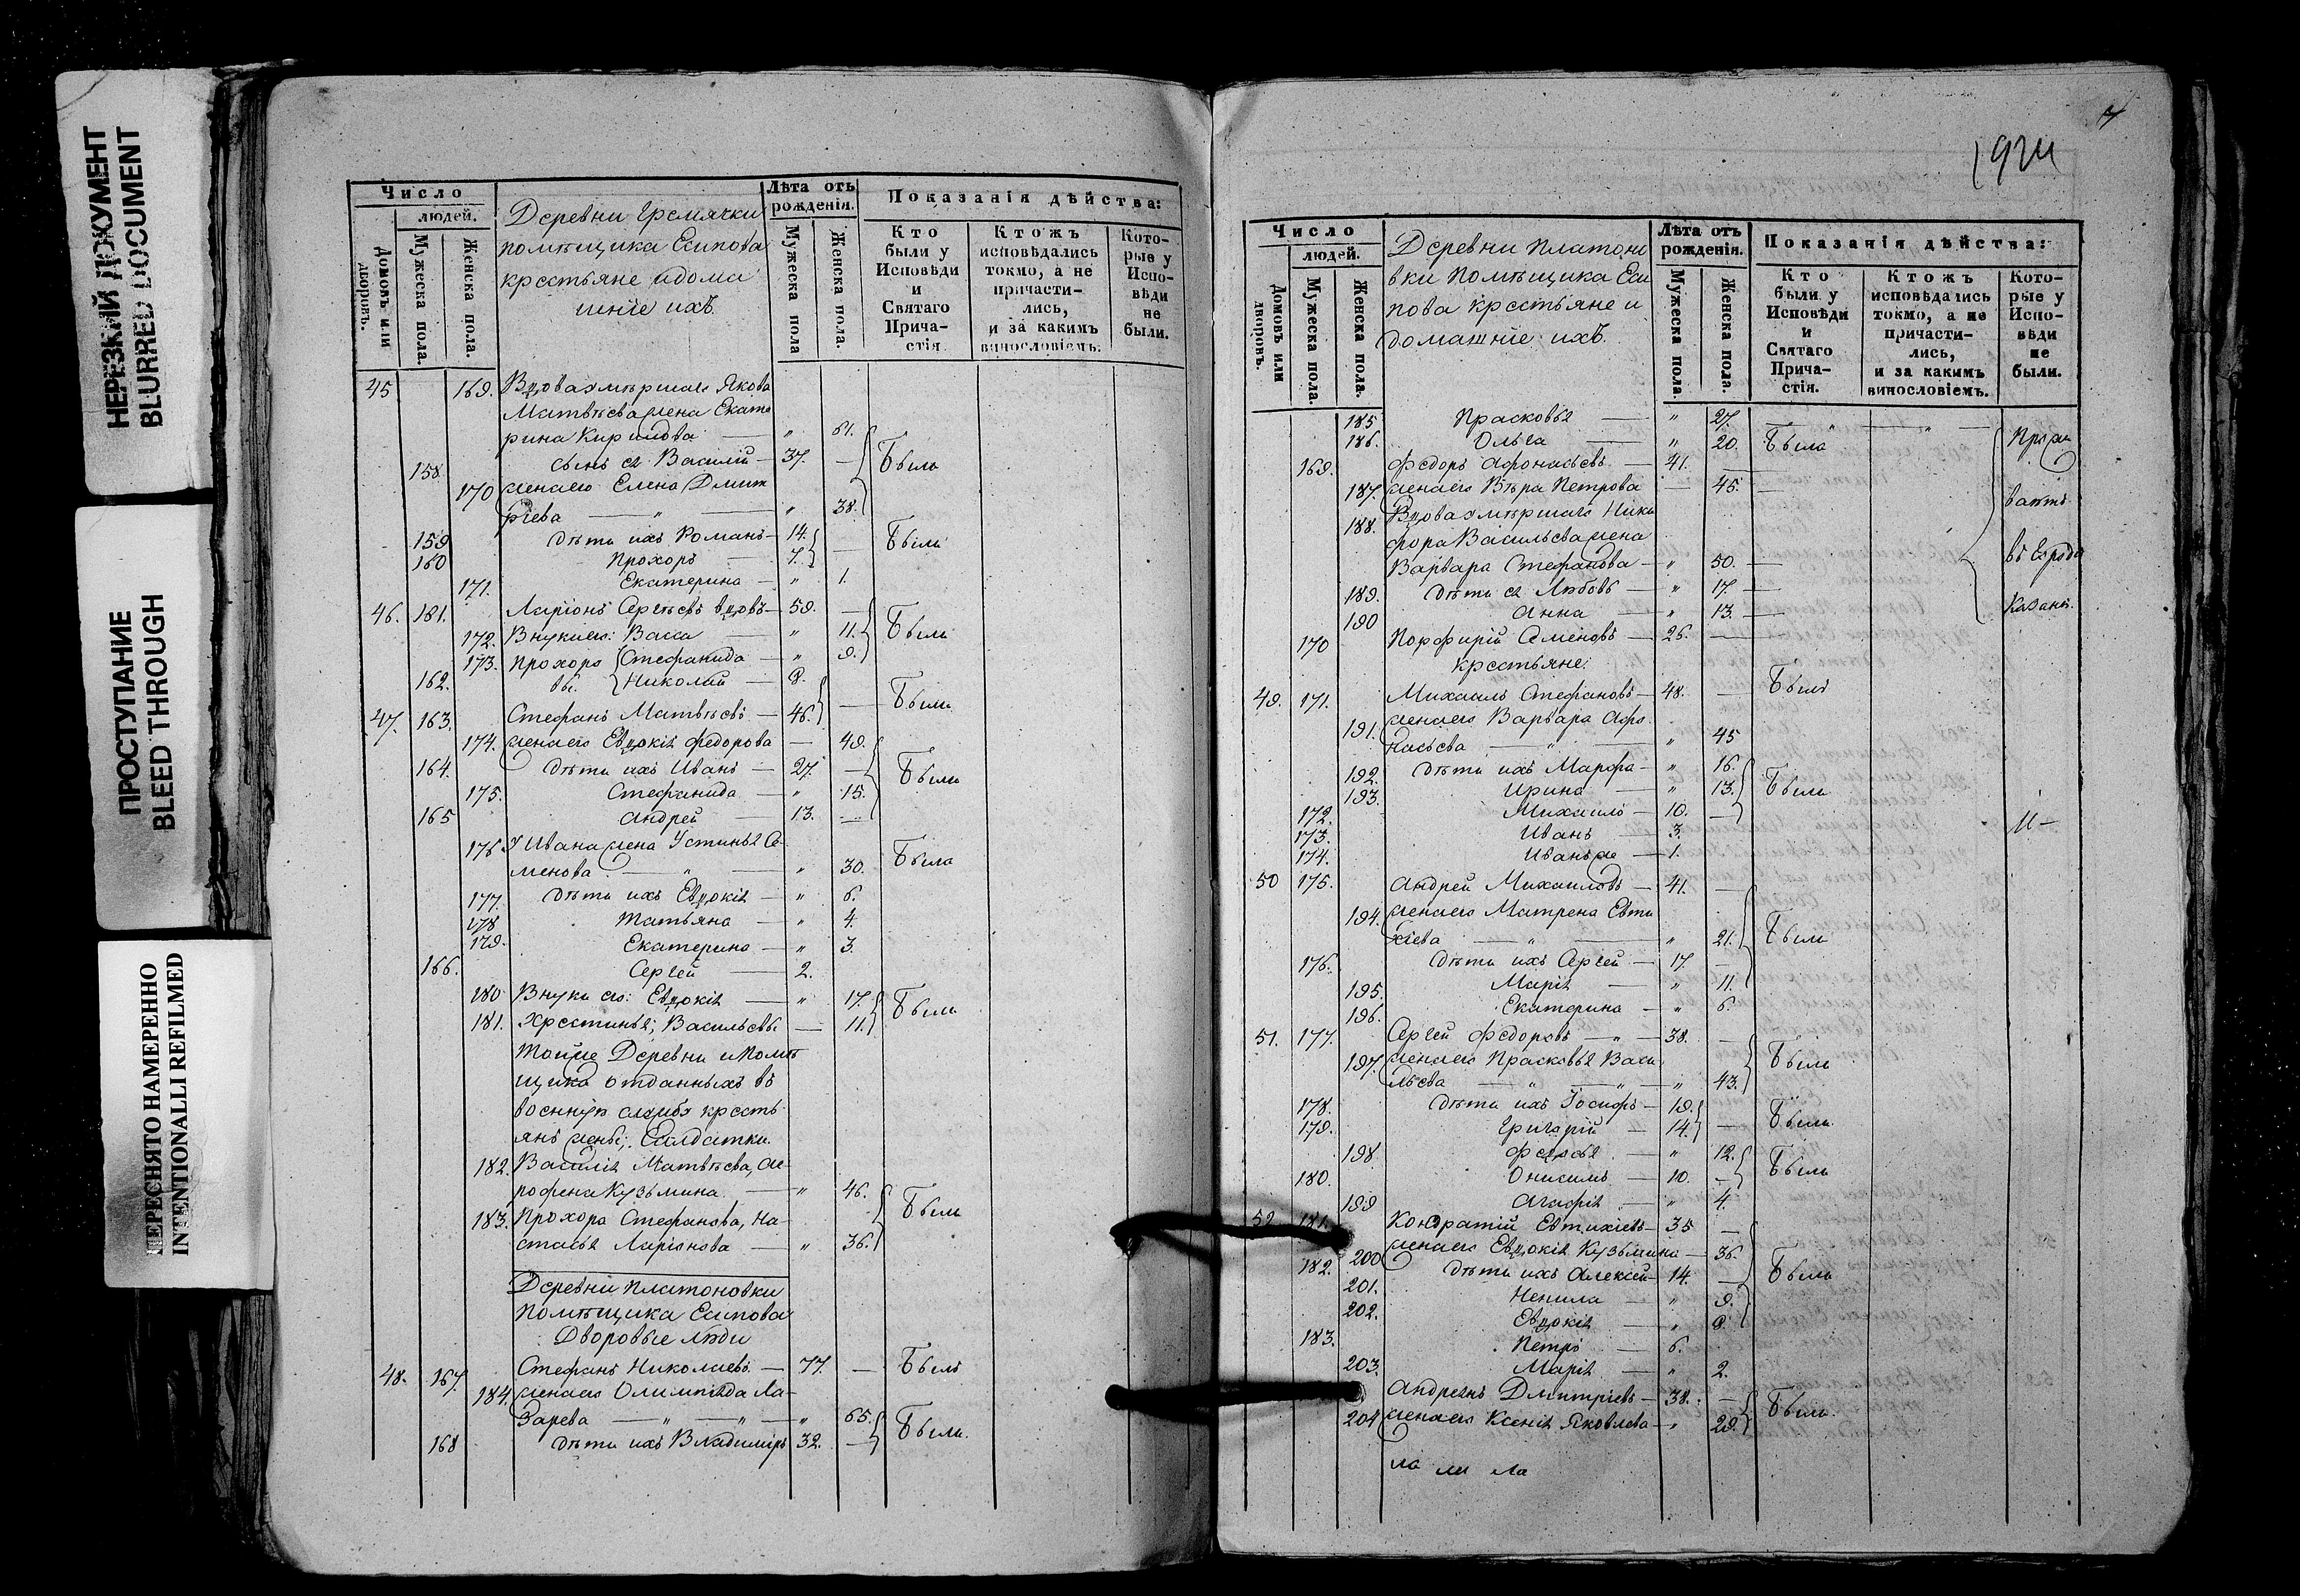 НЕРЕЗКИЙ ДОКУМЕНТ
BLURRED DOCUMENT
ПРОСТУПАНИЕ
BLEED THROUGH
ПЕРЕСНЯТО НАМЕРЕННО
INTENTIONALLI REFILMED
Число
людей.
Домовъ или дворовъ.
Мужеска пола.
Женска пола.
Деревни Гремячки
помѣщика Есипова
крестьяне и дома
шніе ихъ.
Лѣта отъ рожденія.
Мужеска пола
Женска пола.
Показанія дѣйства:
Кто были у Исповѣди и Святаго Причастія
Ктожъ исповѣдались токмо, а не причастились, и за какимъ винословіемъ.
Которые у Исповѣди не были.
45 169. Вдова умѣршаго Якова
Матвѣева жена Екате
рина Кирилова — " 61.
158 сынъ ея Василій — 37. — Были
170 жена его Елена Дмит
ріева — " — " 38.
159 дѣти ихъ Романъ — 14. — Были
160 Прохоръ — 7.
171. Екатерина — " 1.
46. 181. Ларіонъ Сергѣевъ вдовъ — 59. —
172. Внуки его: Васса — " 11. Были
173. Прохоро Стефанида — " 9.
162. вы. Николай — 8.
47. 163. Стефанъ Матвѣевъ — 46. — Были
174. жена его Евдокія Федорова — 49.
164. дѣти ихъ Иванъ — 27. — Были
175. Стефанида — " 15.
165 Андрей — 13. —
176 У Ивана жена Устинья Се-
менова — " — " 30. Была
177. дѣти ихъ Евдокія — " 6.
178 Татьяна — " 4.
179. Екатерина — " 3.
166. Сергей — 2.
180 Внуки его: Евдокія — " 17. Были
181. Хрестинья; Васильевы — 11.
Тойже Деревни и Помѣ
щика отданныхъ въ
военную службу кресть
янъ жены; Салдатки.
182. Василія Матвѣева, Аг-
рофена Кузьмина — " 46.
183. Прохора Стефанова, На- Были
стасья Ларіонова — " 36.
Деревни Платоновки
Помѣщика Есипова
Дворовые люди
48. 167. Стефанъ Николаевъ — 77. — Былъ
184. жена его Олимпіада Ла-
зарева — " — " — " 65.
168 дѣти ихъ Владиміръ 32. — Были.
Число
людей.
Домовъ или дворовъ.
Мужеска пола.
Женска пола.
Деревни Платоно
вки Помѣщика Еси
пова крестьяне и
домашніе ихъ.
Лѣта отъ рожденія.
Мужеска пола.
Женска пола.
Показанія дѣйства:
Кто были у Исповѣди и Святаго Причастія.
Ктожъ исповѣдались токмо, а не причастились, и за какимъ винословіемъ.
Которые у Исповѣди не были.
185 Прасковья — " 27. — " — "
186. Ольга — " 20. Была
169. Федоръ Афонасьевъ — 41. —
187. жена его Вѣра Петрова — 45. —
188. Вдова умѣршаго Ники
фора Васильева жена
Варвара Стефанова — " 50. — въ
189. дѣти ея Любовь — " 17. —
190 Анна — " 13. — Казани.
170 Порфирій Семеновъ — 26. —
крестьяне:
49. 171. Михаилъ Стефановъ — 48. — Былъ
191. жена его Варвара Афо
насьева — " — " 45
192. дѣти ихъ Марфа — " 16.
193. Ирина — " 13. Были
172. Михаилъ — 10. —
173. Иванъ — 3.
174. Иванъ же — 1.
50 175. Андрей Михаиловъ — 41. —
194. жена его Матрена Евти
хіева — " — " 21. Были
176. дѣти ихъ Сергей — 17. —
195. Марія — " 11.
196. Екатерина — " 6.
51. 177. Сергей Федоровъ — " — 38. —
197. жена его Прасковья Васи Были
льева — " — " — " 43.
178. дѣти ихъ Іосифъ — 19. Были.
179. Григорій — 14. —
198. — " 12.
180. Онисимъ — 10. — Были
199 Агафія — " 4.
52 181. Кондратій Евтихіевъ — 35 —
200 жена его Евдокія Кузьмина — 36.
182. дѣти ихъ Алексій — 14. — Были
201. Ненила — " 9.
202. Евдокія — " 8.
183. Петръ — 6.
203. Марія — " 2.
Андреянъ Дмитріевъ — 38. — Были.
204 жена его Ксенія Яковлева — " 29.